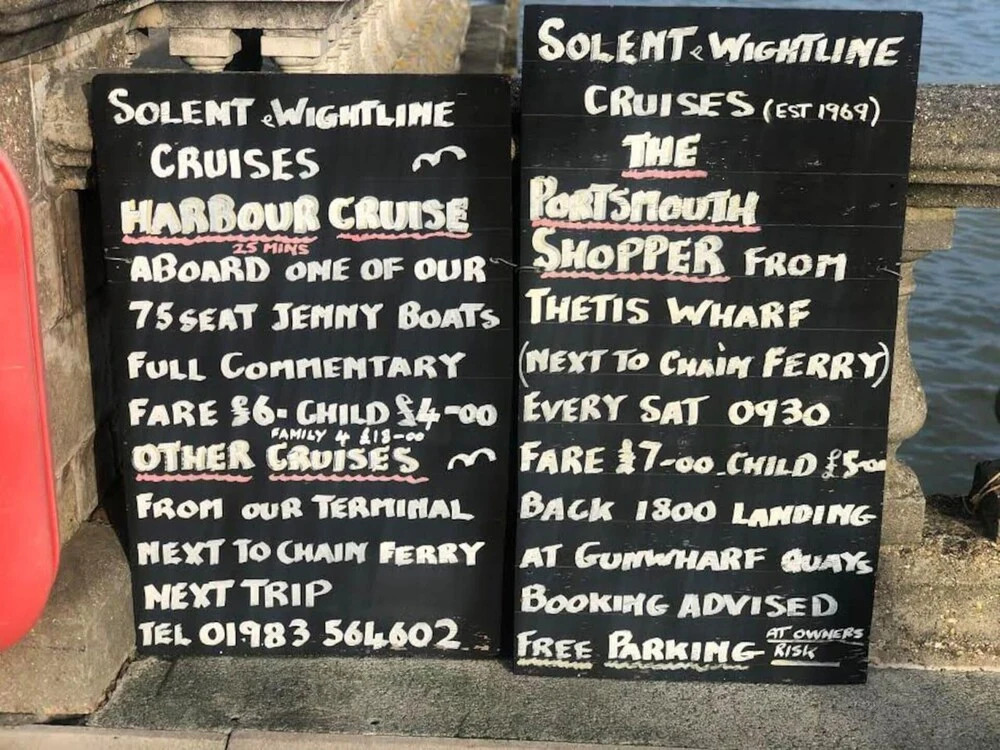 SOLENT & WIGHTLINE
CRUISES
HARBOUR CRUISE
25 MINS
ABOARD ONE OF OUR
75 SEAT JENNY BOATS
FULL COMMENTARY
FARE £6- CHILD £4-00
FAMILY 4 £18-00
OTHER CRUISES
FROM OUR TERMINAL
NEXT TO CHAIN FERRY
NEXT TRIP
TEL 01983 564602
SOLENT & WIGHTLINE
CRUISES (EST 1969)
THE
PORTSMOUTH
SHOPPER FROM
THETIS WHARF
(NEXT TO CHAIN FERRY)
EVERY SAT 0930
FARE £7-00 CHILD £5-00
BACK 1800 LANDING
AT GUNWHARF QUAYS
BOOKING ADVISED
FREE PARKING AT OWNERS
RISK